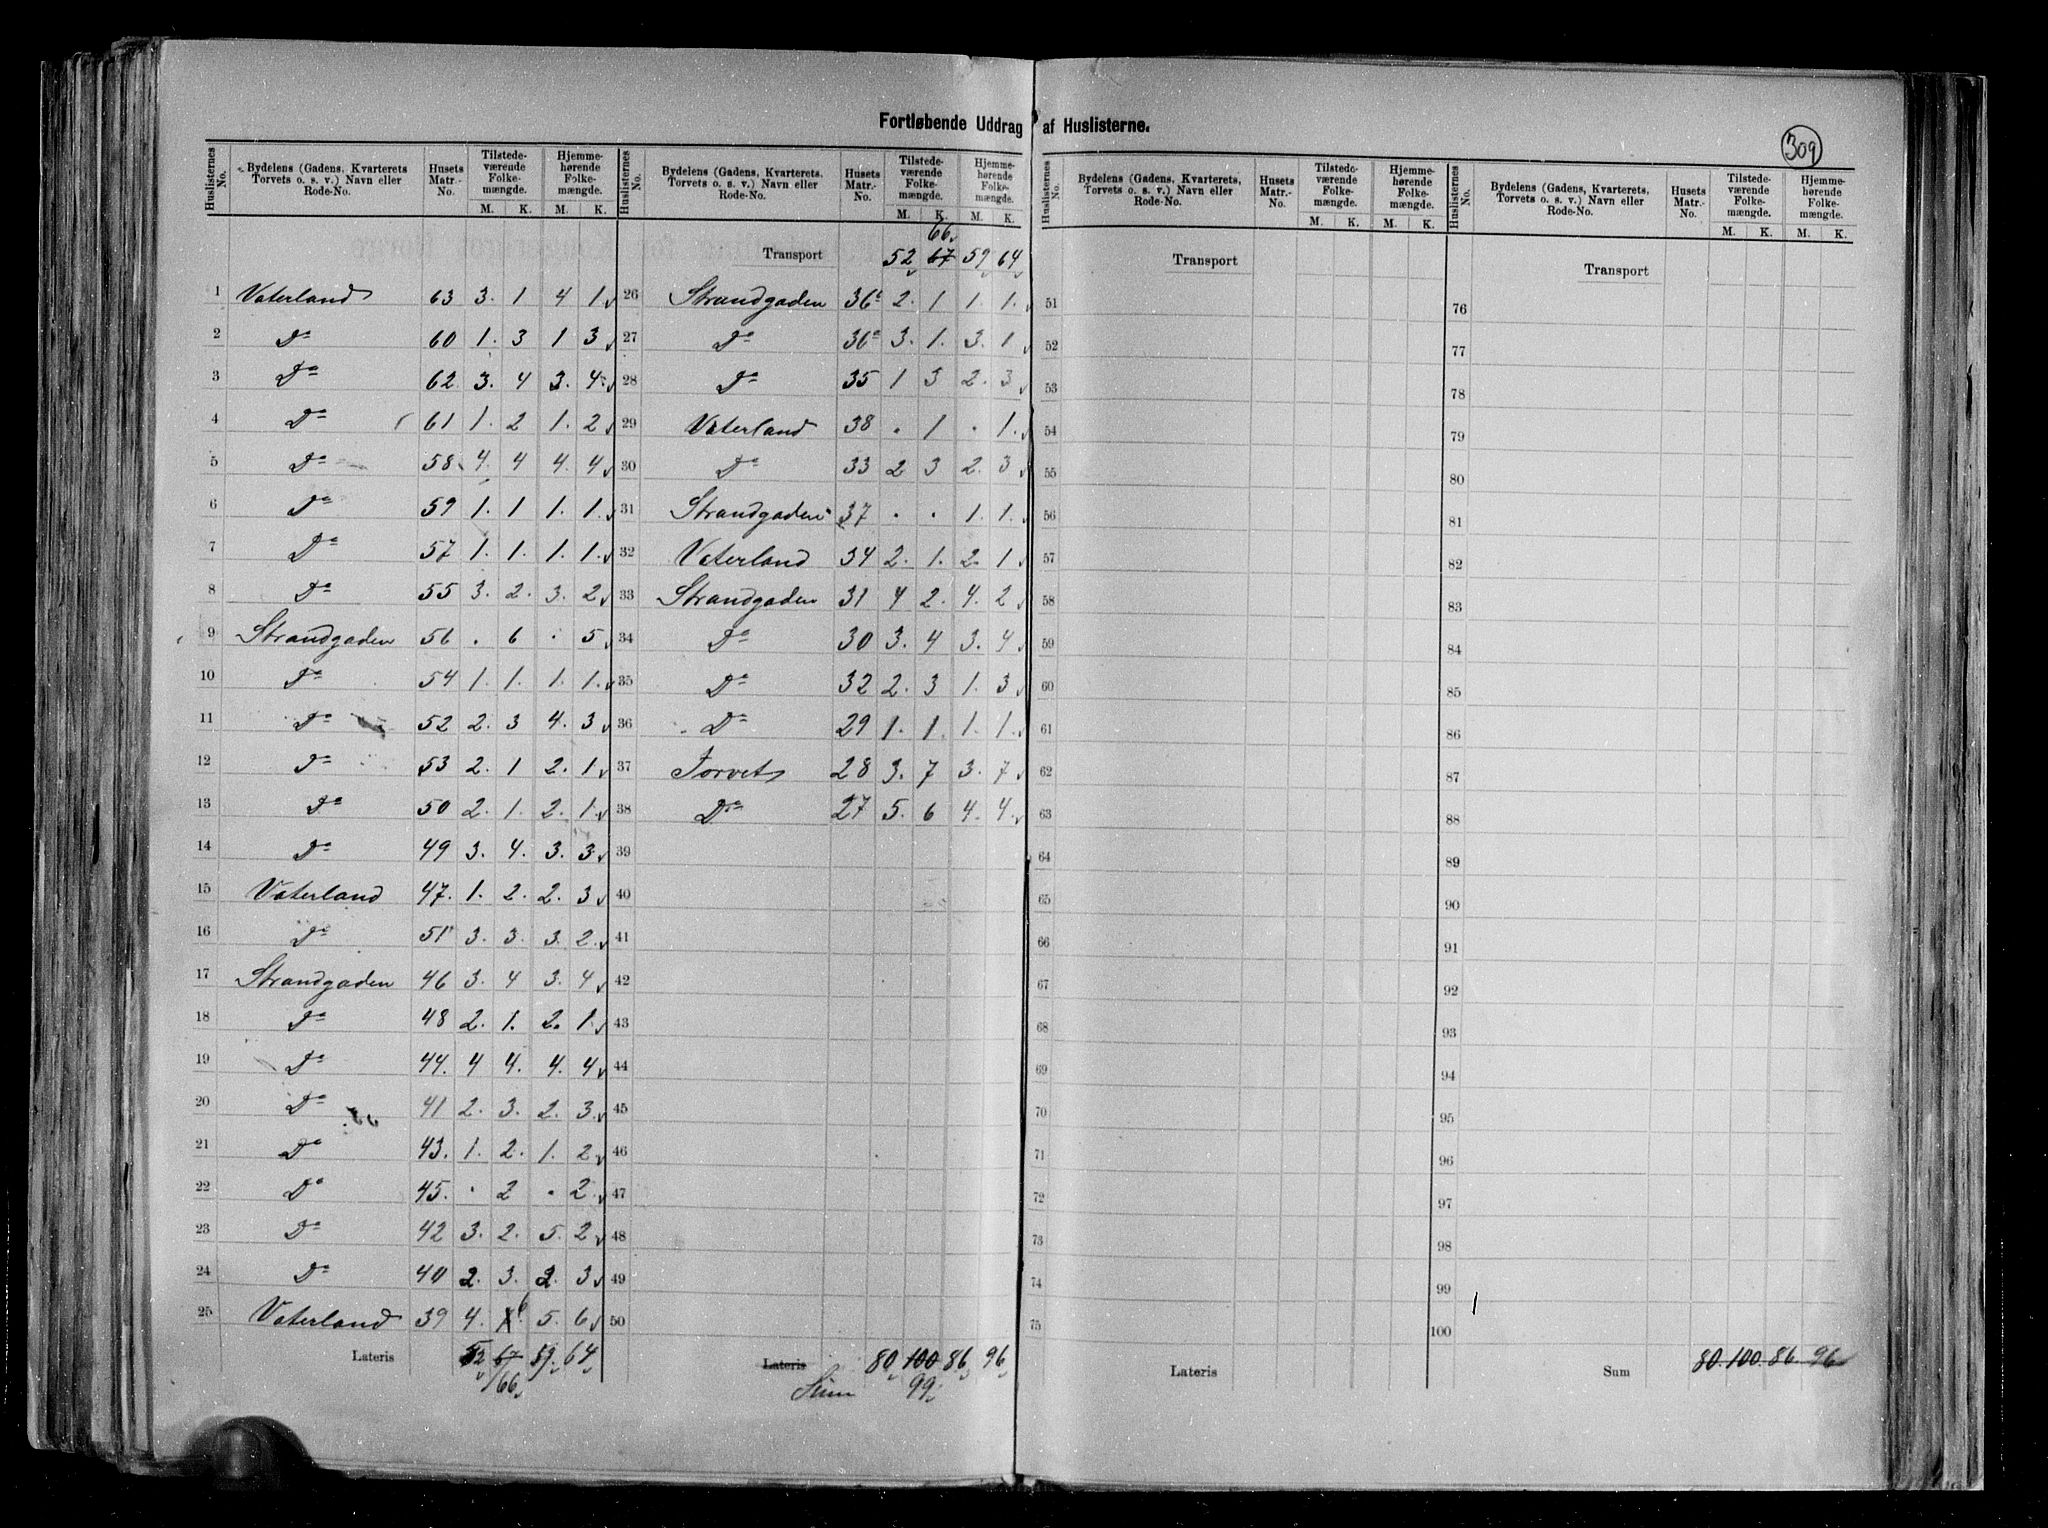 Fortløbende Uddrag af Huslisterne.
309
Huslisternes No. Bydelens (Gadens, Kvarterets Torvets o. s. v.) Navn eller Rode-No. Husets Matr.-No. Tilstedeværende Folkemængde. M. K. Hjemmehørende Folkemængde. M. K.
1 Vaterland 63 3. 1 4 1.
2 Do 60 1. 3 1 3
3 Do 62 3. 4 3. 4.
4 Do 61 1. 2 1. 2
5 Do 58 4. 4 4. 4
6 Do 59 1. 1 1. 1.
7 Do 57 1. 1. 1. 1.
8 Do 55 3. 2. 3. 2
9 Strandgaden 56 . 6 . 5
10 Do 54 1. 1. 1. 1.
11 Do 52 2. 3 4. 3
12 Do 53 2. 1 2. 1
13 Do 50 2. 1. 2. 1.
14 Do 49 3. 4. 3. 3
15 Vaterland 47. 1. 2. 2. 3
16 Do 51 3. 3. 3. 2
17 Strandgaden 46 3. 4 3. 4
18 Do 48 2. 1. 2. 1.
19 Do 44. 4 4. 4. 4
20 Do 41 2. 3. 2. 3.
21 Do 43. 1. 2. 1. 2
22 Do 45. . 2 . 2.
23 Do 42 3. 2. 5. 2
24 Do 40 2. 3. 2. 3
25 Vaterland 39 4. 6 5. 6
Lateris 52 67 59. 64
66
Huslisternes No. Bydelens (Gadens, Kvarterets, Torvets o. s. v.) Navn eller Rode-No. Husets Matr.-No. Tilstedeværende Folkemængde. M. K. Hjemmehørende Folkemængde. M. K.
66
Transport 52 67 59 64
26 Strandgaden 36 2. 1 1. 1.
27 Do 36a 3. 1. 3. 1
28 Do 35 1 3 2. 3
29 Vaterland 38 . 1 . 1.
30 Do 33 2 3 2. 3
31 Strandgaden 37 . . 1. 1.
32 Vaterland 34 2. 1. 2. 1
33 Strandgaden 31 4 2. 4. 2
34 Do 30 3. 4 3. 4
35 Do 32 2. 3 1. 3
36 Do 29 1. 1. 1. 1.
37 Torvet 28 3. 7 3. 7
38 Do 27 5. 6 4. 4.
39
40
41
42
43
44
45
46
47
48
49
50
Lateris 80 100 86 96
Sum 99
Huslisternes No. Bydelens (Gadens, Kvarterets, Torvets o. s. v.) Navn eller Rode-No. Husets Matr.-No. Tilstedeværende Folkemængde. M. K. Hjemmehørende Folkemængde. M. K.
Transport
51
52
53
54
55
56
57
58
59
60
61
62
63
64
65
66
67
68
69
70
71
72
73
74
75
Lateris
Huslisternes No. Bydelens (Gadens, Kvarterets, Torvets o. s. v.) Navn eller Rode-No. Husets Matr.-No. Tilstedeværende Folkemængde. M. K. Hjemmehørende Folkemængde. M. K.
Transport
76
77
78
79
80
81
82
83
84
85
86
87
88
89
90
91
92
93
94
95
96
97
98
99
100
Sum 80 100. 86 96